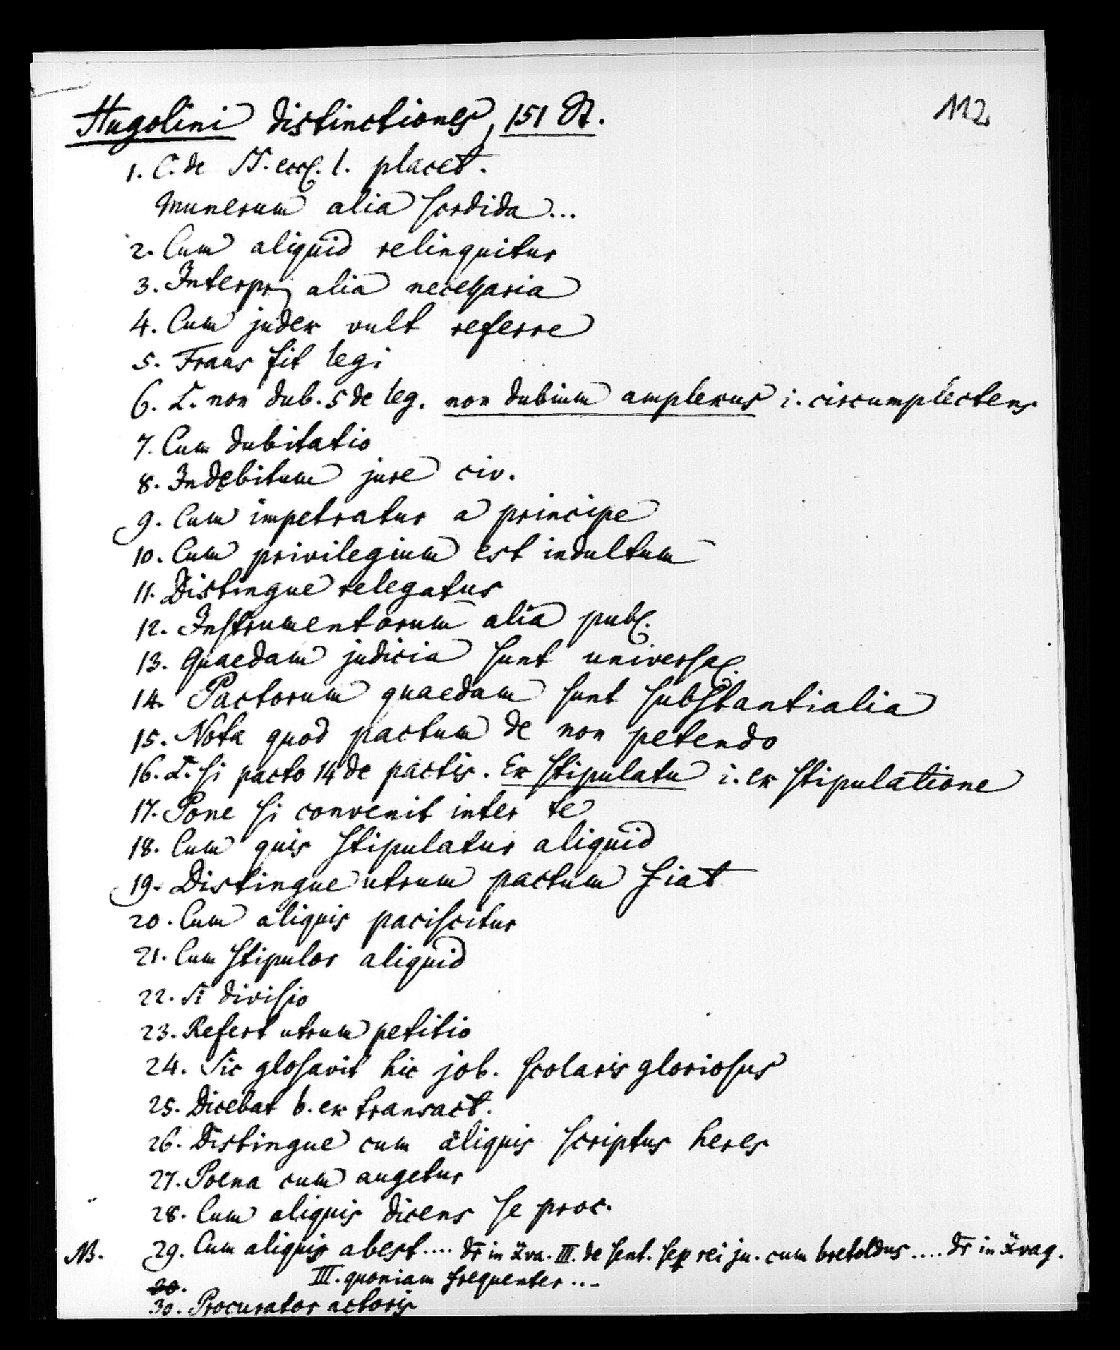 Hugolini distinctiones, 151 St.
112
1. C. de SS. eccl. l. placet.
Munerum alia sordida...
2. Cum aliquid relinquitur
3. Interpr. alia necessaria
4. Cum judex vult referre
5. Fraus fit legi
6. L. non dub. 5 de leg. non dubium amplexus i. circumplectens
7. Cum dubitatio
8. Indebitum jure civ.
9. Cum impetratur a principe
10. Cum privilegium est indultum
11. Distingue relegatus
12. Instrumentorum alia publ.
13. Quaedam judicia sunt universal.
14. Pactorum quaedam sunt substantialia
15. Nota quod pactum de non petendo
16. L. si pacto 14 de pactis. Ex stipulatu i. ex stipulatione
17. Pone si convenit inter te
18. Cum quis stipulatur aliquid
19. Distingue utrum pactum fiat
20. Cum aliquis paciscitur
21. Cum stipulor aliquid
22. Si divisio
23. Refert utrum petitio
24. Sic glosavit hic job. scolaris gloriosus
25. Dicebat b. ex transact.
26. Distingue cum aliquis scriptus heres
27. Poena cum augetur
28. Cum aliquis dicens se proc.
NB. 29. Cum aliquis abest.... dr in xva. III. de sent. sep rei ju. cum bretoldus.... dr in xvag.
30. III. quoniam frequenter...
30. Procurator actoris